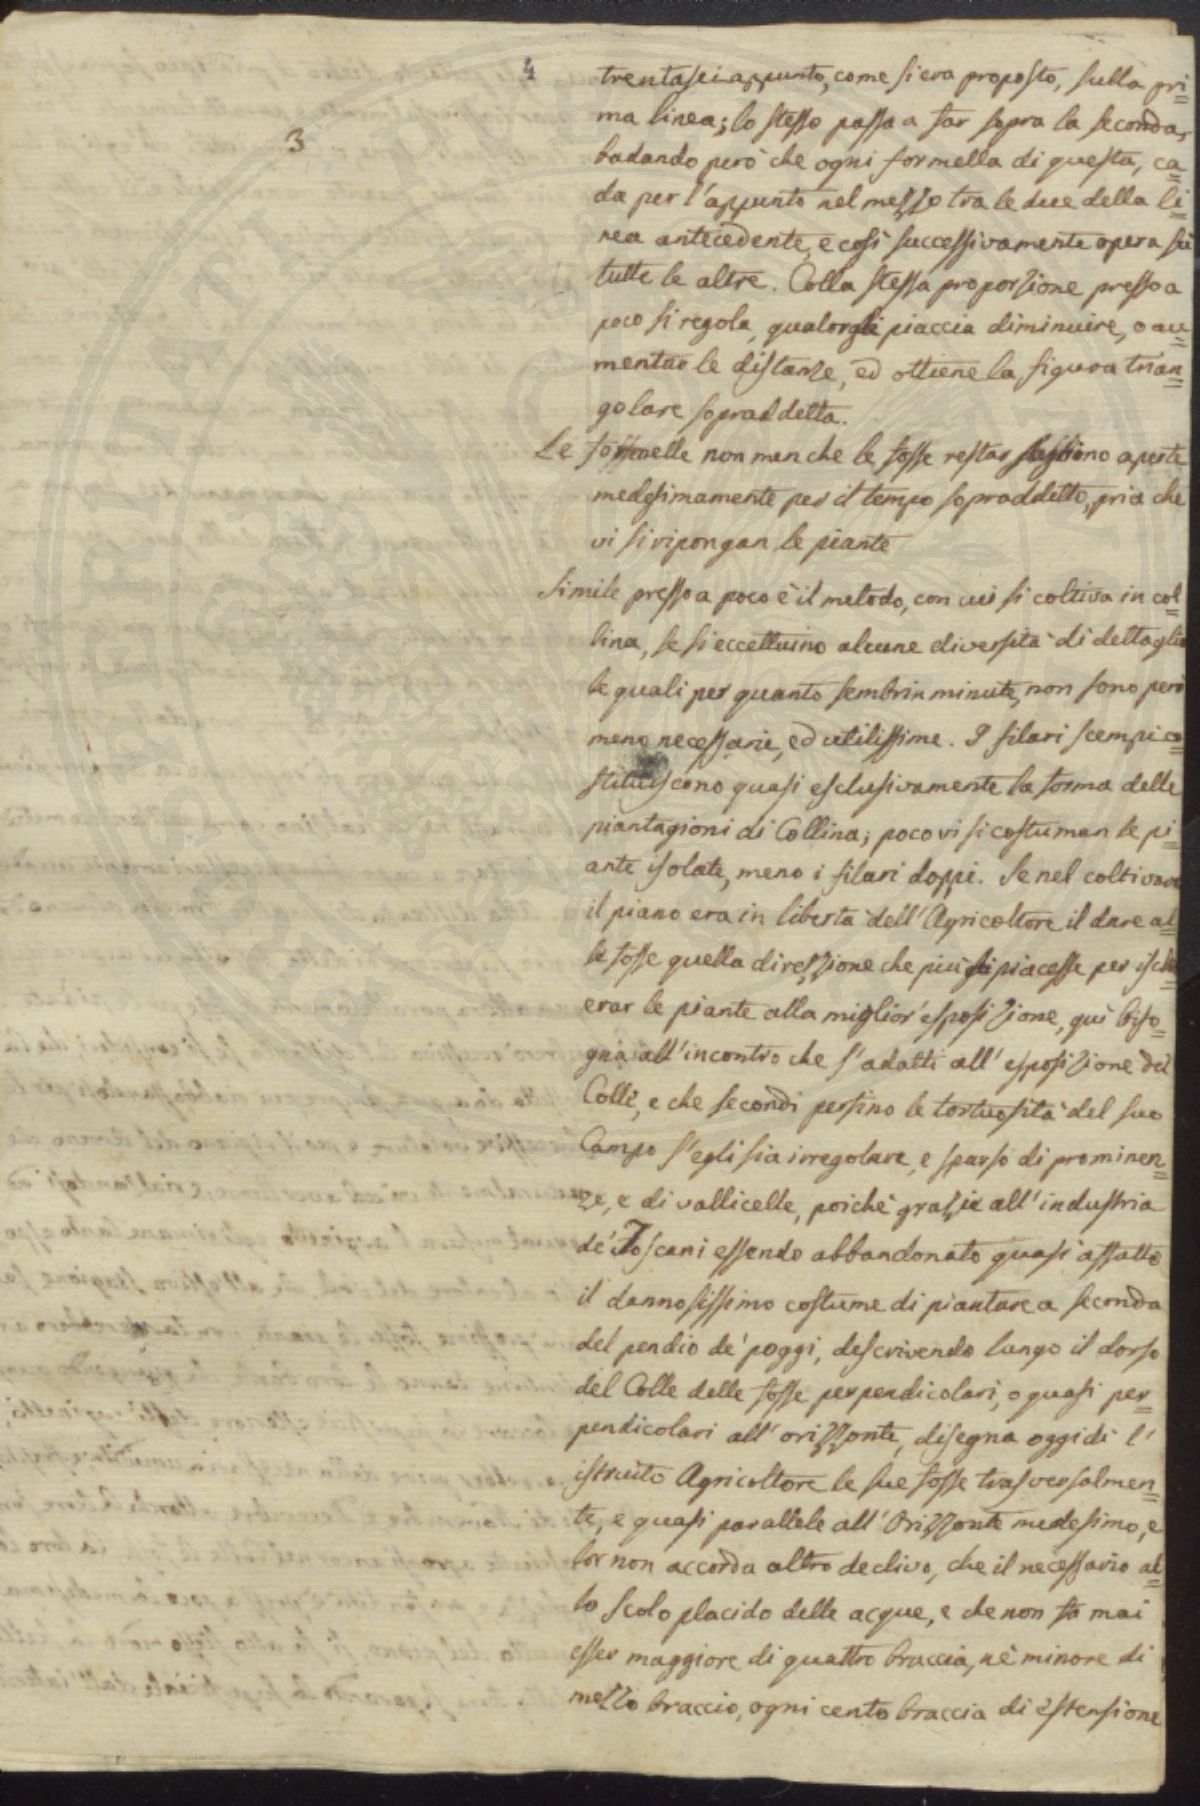 4
3
trentasei appunto, come si era proposto, sulla pri=
ma linea; lo stesso passa a far sopra la seconda,
badando però che ogni formella di questa, ca=
da per l'appunto nel mezzo tra le due della li=
nea antecedente, e così successivamente opera su
tutte le altre. Colla stessa proporzione presso a
poco si regola, qualor gli piaccia diminuire, o au=
mentar le distanze, ed ottiene la figura trian=
golare sopraddetta.
Le formelle non men che le fosse restar sogliono aperte
medesimamente per il tempo sopraddetto, pria che
vi si ripongan le piante
Simile presso a poco è il metodo, con cui si coltiva in col=
lina, se si eccettuino alcune diversità di dettaglio
le quali per quanto sembrin minute, non sono però
meno necessarie, ed utilissime. I filari scempi co=
stituiscono quasi esclusivamente la forma delle
piantagioni di Collina; poco vi si costuman le pi=
ante isolate, meno i filari doppi. Se nel coltivare
il piano era in libertà dell'Agricoltore il dare al=
le fosse quella direzzione che più gli piacesse per ischi
erar le piante alla miglior esposizione, quì biso=
gna all'incontro che s'adatti all'esposizione del
Colle, e che secondi persino le tortuosità del suo
Campo s'egli sia irregolare, e sparso di prominen=
ze, e di vallicelle, poichè grazie all'industria
de' Toscani essendo abbandonato quasi affatto
il dannosissimo costume di piantare a seconda
del pendio de' poggi, descrivendo lungo il dorso
del Colle delle fosse perpendicolari, o quasi per=
pendicolari all'orizzonte, disegna oggidì l'
istruito Agricoltore le sue fosse trasversalmen=
te, e quasi parallele all'Orizzonte medesimo, e
lor non accorda altro declivo, che il necessario al=
lo scolo placido delle acque, e che non fa mai
esser maggiore di quattro braccia, nè minore di
mezzo braccio, ogni cento braccia di estensione